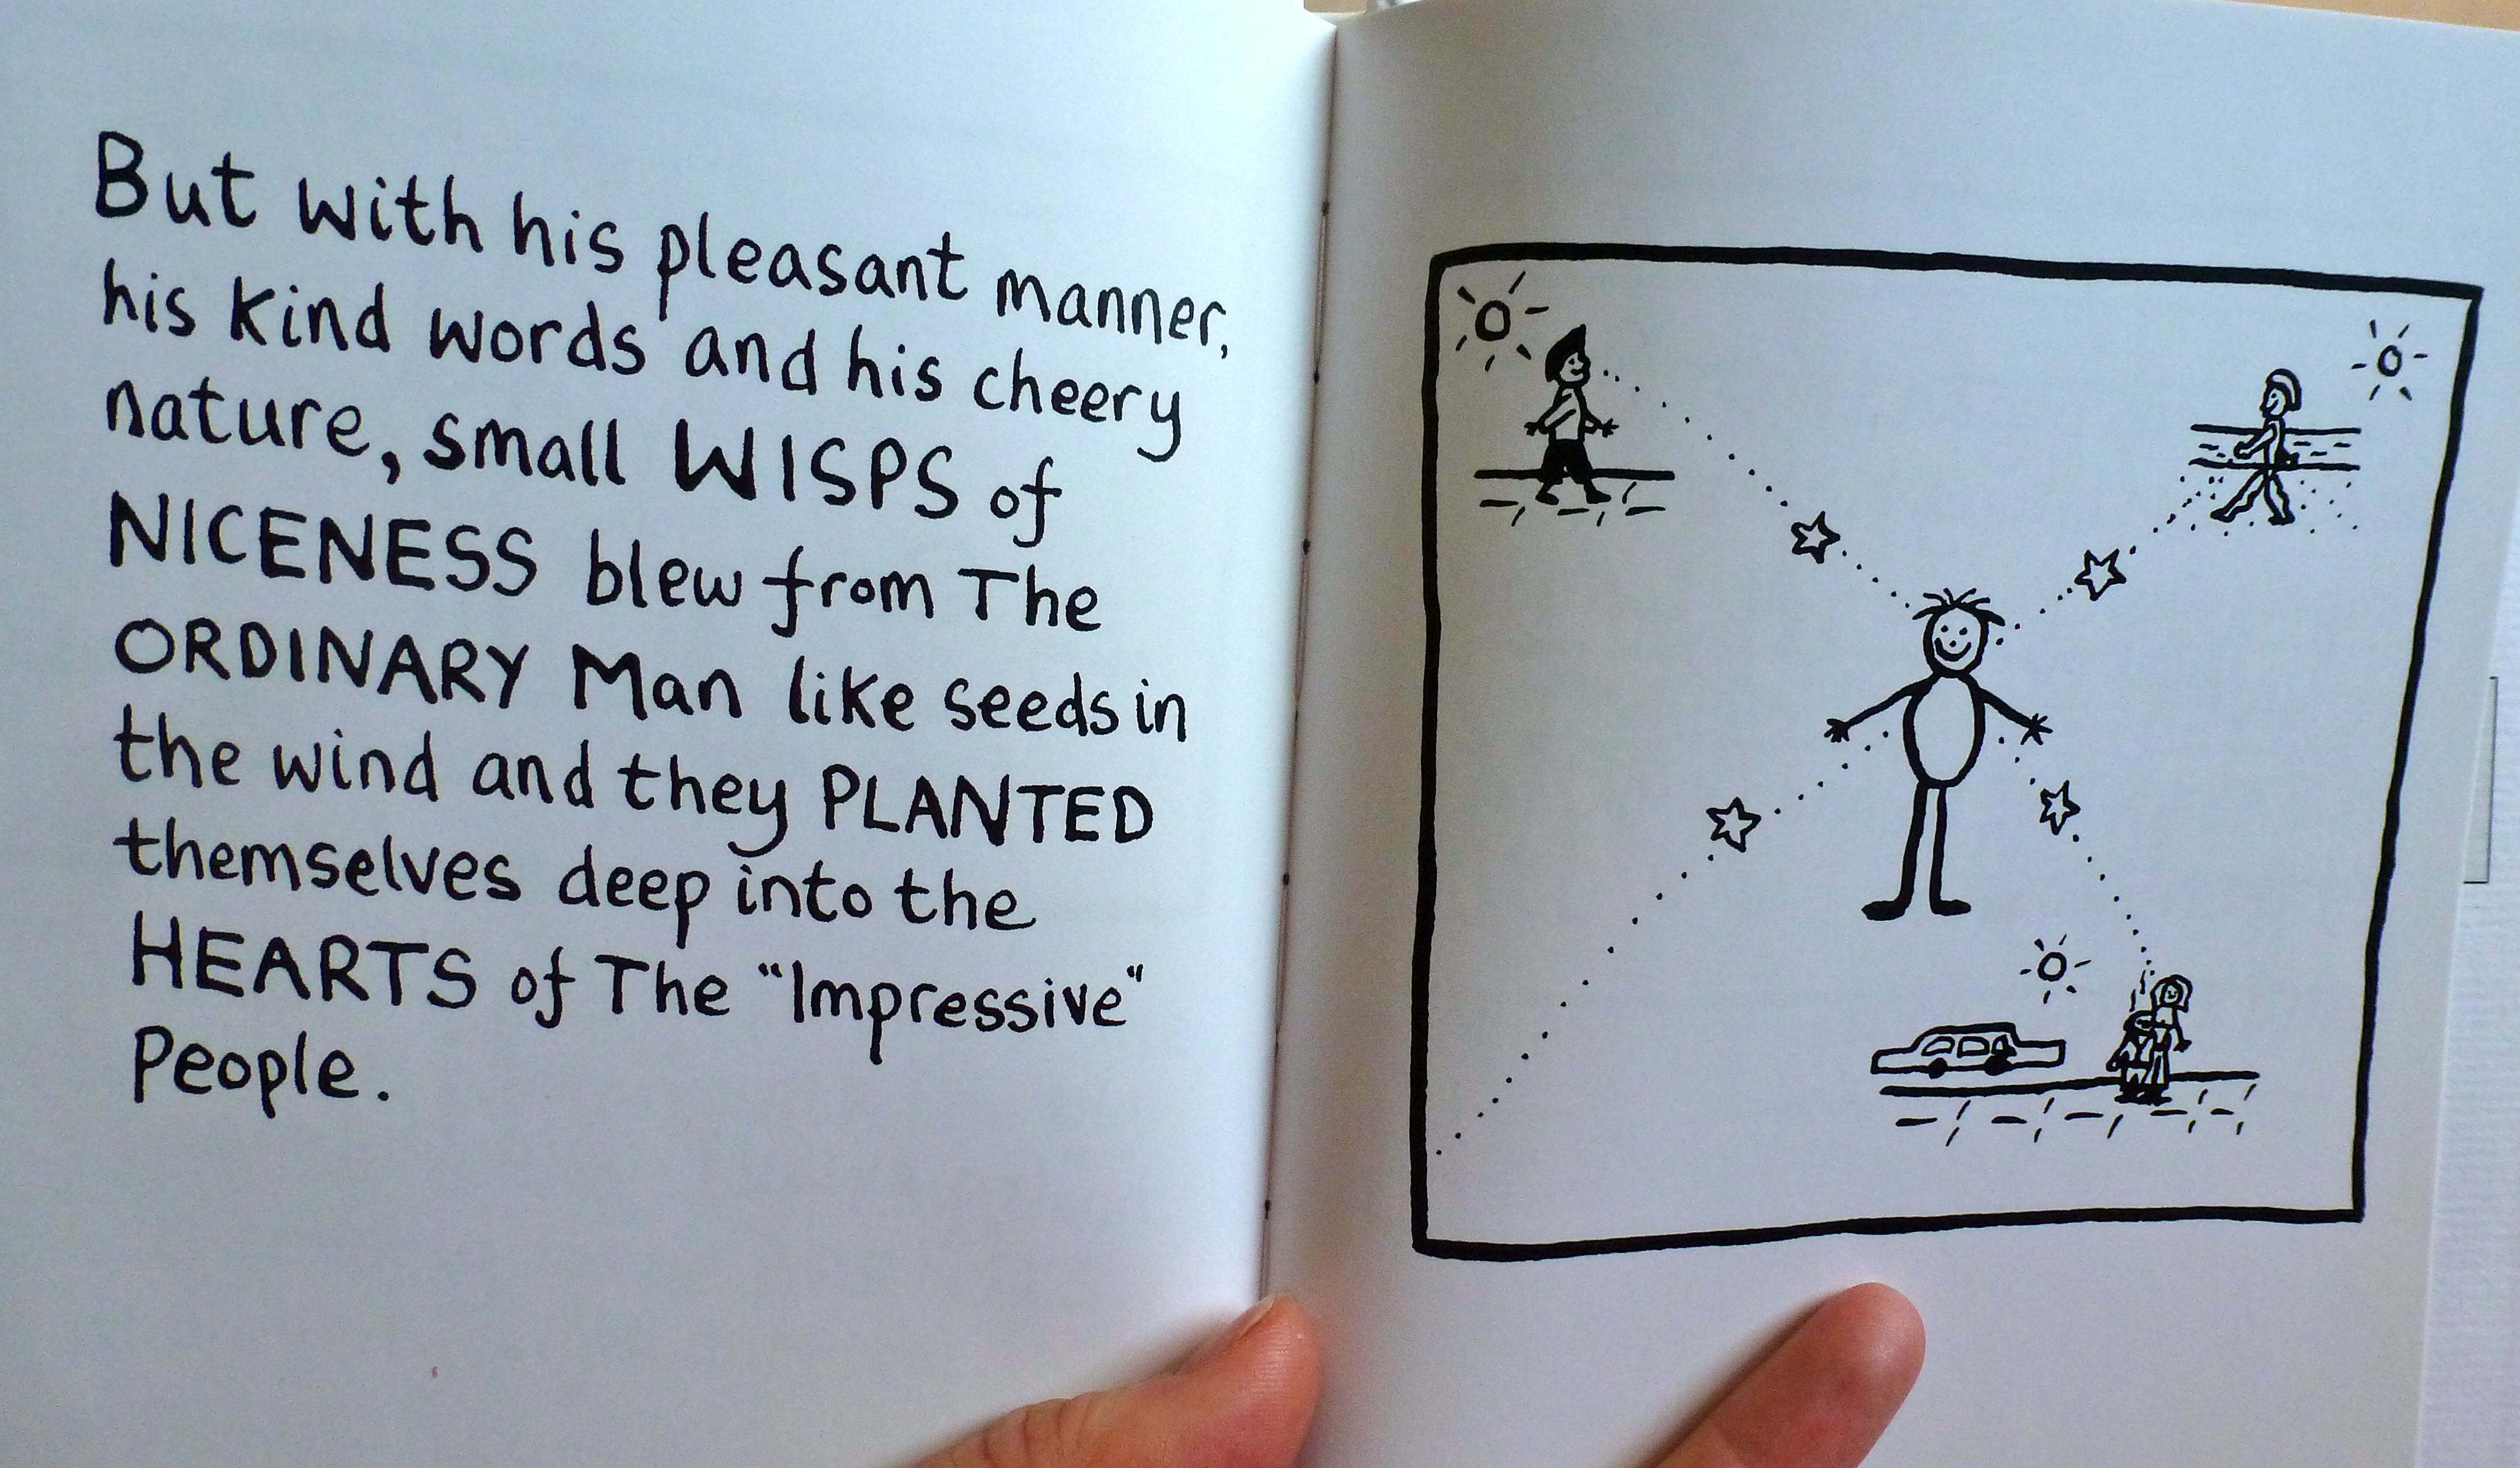 But with his pleasant manner,
his kind words and his cheery
nature, small WISPS of
NICENESS blew from The
ORDINARY Man like seeds in
the wind and they PLANTED
themselves deep into the
HEARTS of The "Impressive"
People.